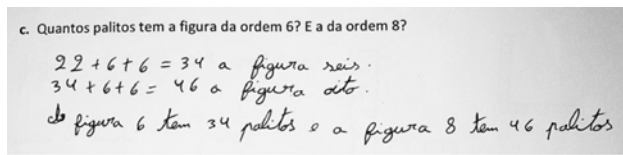 c. Quantos palitos tem a figura da ordem 6? E a da ordem 8?
22 + 6 + 6 = 34 a figura seis.
34 + 6 + 6 = 46 a figura oito.
figura 6 tem 34 palitos e a figura 8 tem 46 palitos